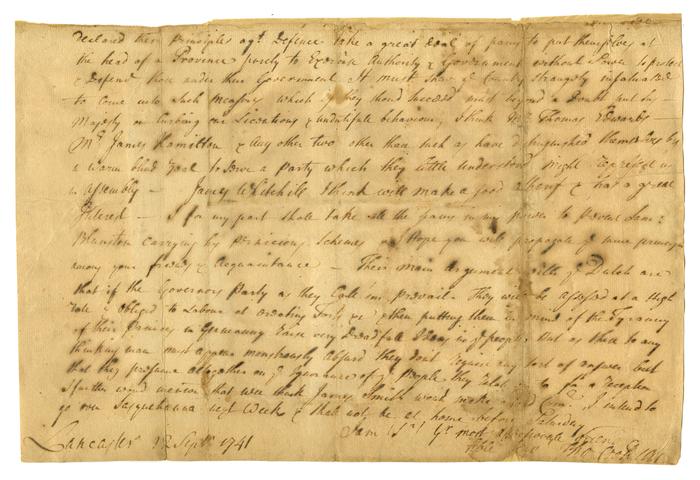 declared their Principles agt. Defence take a great deal of pains to put themselves at
the head of a Province purely to Exercise Authority & Government without Power to protect
& Defend those under their Government It must shew ye County Strangely infatuated
to come into such measures which if they shoud succeed must beyond a Doubt
Majesty on our & undutifull behaviour, I think Mr. Thomas Edwards
Mr. James Hamilton & any other two other than such as have distinguished themselves by
a warm blind Zeal to serve a party which they little understood might represent us
in Assembly — James Whitehill I think will make a good Sherif & has a great
Interest — I for my part shall take all the pains in my power to prevent Sam:
Blunston carrying his pernicious Schemes & I hope you will propagate ye same
among your friends & Acquaintance — Their main argument with ye Dutch are
that if the Governors Party as they Call 'em prevail They will be at a high
rate & obliged to Labour at Forts, &c & then putting them in mind of the Tyranny
of their Princes in Germany raise very Dreadfull Ideas in ye people But as these to any
thinking man must appear monstrously absurd they dont require any sort of answer but
that they presume altogether on ye Ignorance of ye People
I further woud mention that wee think James Smith woud make a good I intend to
go over Sasquehanna next Week & shall not be at home before Saturday
I am Sr. Yr. most
Lancaster 12 Septr. 1741 Tho Cookson